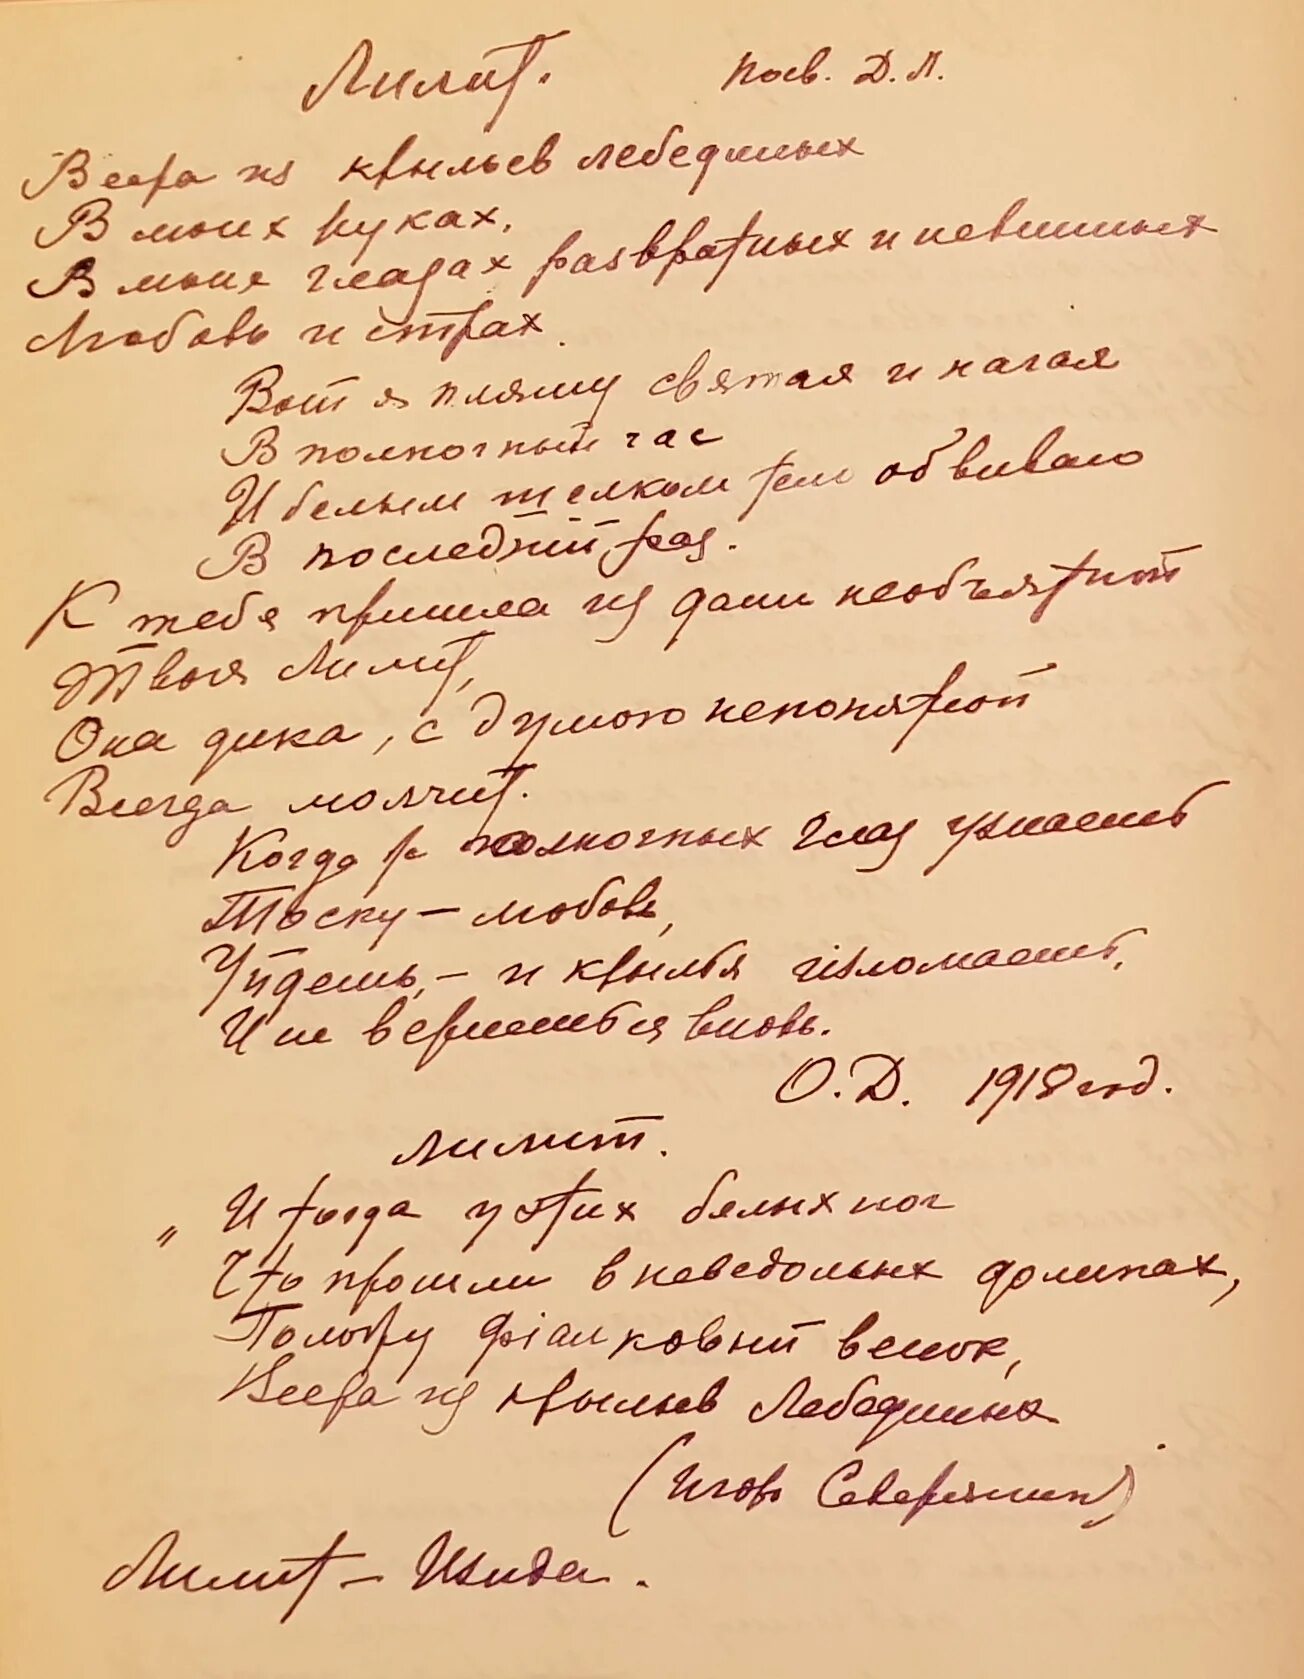 Лилит. Посв. Д. Л.
Веера из крыльев лебединых
В моих руках,
В моих глазах развратных и невинных
Любовь и страх.
Вот я пляшу святая и нагая
В полночный час
И белым шелком тело обвиваю
В последний раз.
К тебе пришла из дали необъятной
Твоя Лилит,
Она дика, с думою непонятной
Всегда молчит.
Когда в полночных глаз узнаешь
Тоску – любовь,
Уйдешь, – и крылья изломаешь,
И не вернешься вновь.
О. Д. 1918 год.
Лилит.
„ И тогда у этих белых ног
Что прошли в неведомых долинах,
Положу фіалковый венок,
Веера из крыльев лебединых
(Игорь Северянин)
Лилит – Изида.